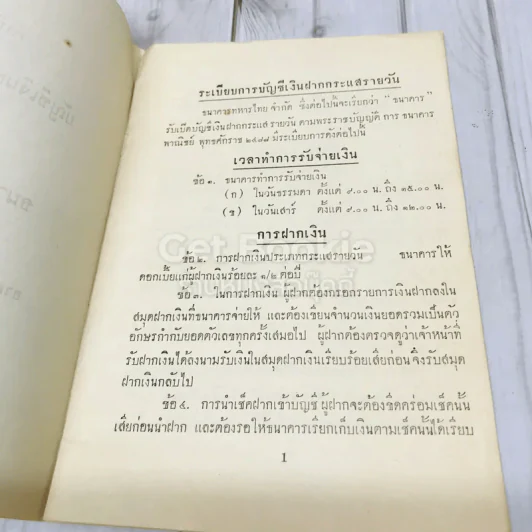 ระเบียบการบัญชีเงินฝากกระแสรายวัน
ธนาคารทหารไทย จำกัด ซึ่งต่อไปนี้จะเรียกว่า "ธนาคาร"
รับเปิดบัญชีเงินฝากกระแสรายวัน ตามพระราชบัญญัติ การ ธนาคาร
พาณิชย์ พุทธศักราช ๒๔๘๘ มีระเบียบการดังต่อไปนี้
เวลาทำการรับจ่ายเงิน
ข้อ ๑. ธนาคารทำการรับจ่ายเงิน
(ก) ในวันธรรมดา ตั้งแต่ ๙.๐๐ น. ถึง ๑๕.๐๐ น.
(ข) ในวันเสาร์ ตั้งแต่ ๙.๐๐ น. ถึง ๑๒.๐๐ น.
การฝากเงิน
Get Bookie
ข้อ ๒. การฝากเงินประเภทกระแสรายวัน ธนาคารให้
ดอกเบี้ยแก่ผู้ฝากเงินร้อยละ ๑/๒ ต่อปี
ข้อ ๓. ในการฝากเงิน ผู้ฝากต้องกรอกรายการเงินฝากลงใน
สมุดฝากเงินที่ธนาคารจ่ายให้ และต้องเขียนจำนวนเงินยอดรวมเป็นตัว
อักษรกำกับยอดตัวเลขทุกครั้งเสมอไป ผู้ฝากต้องตรวจดูว่าเจ้าหน้าที่
รับฝากเงินได้ลงนามรับเงินในสมุดฝากเงินเรียบร้อยเสียก่อน จึงรับสมุด
ฝากเงินกลับไป
ข้อ ๔. การนำเช็คฝากเข้าบัญชี ผู้ฝากจะต้องขีดคร่อมเช็คนั้น
เสียก่อนนำฝาก และต้องรอให้ธนาคารเรียกเก็บเงินตามเช็คนั้นได้เรียบ
1